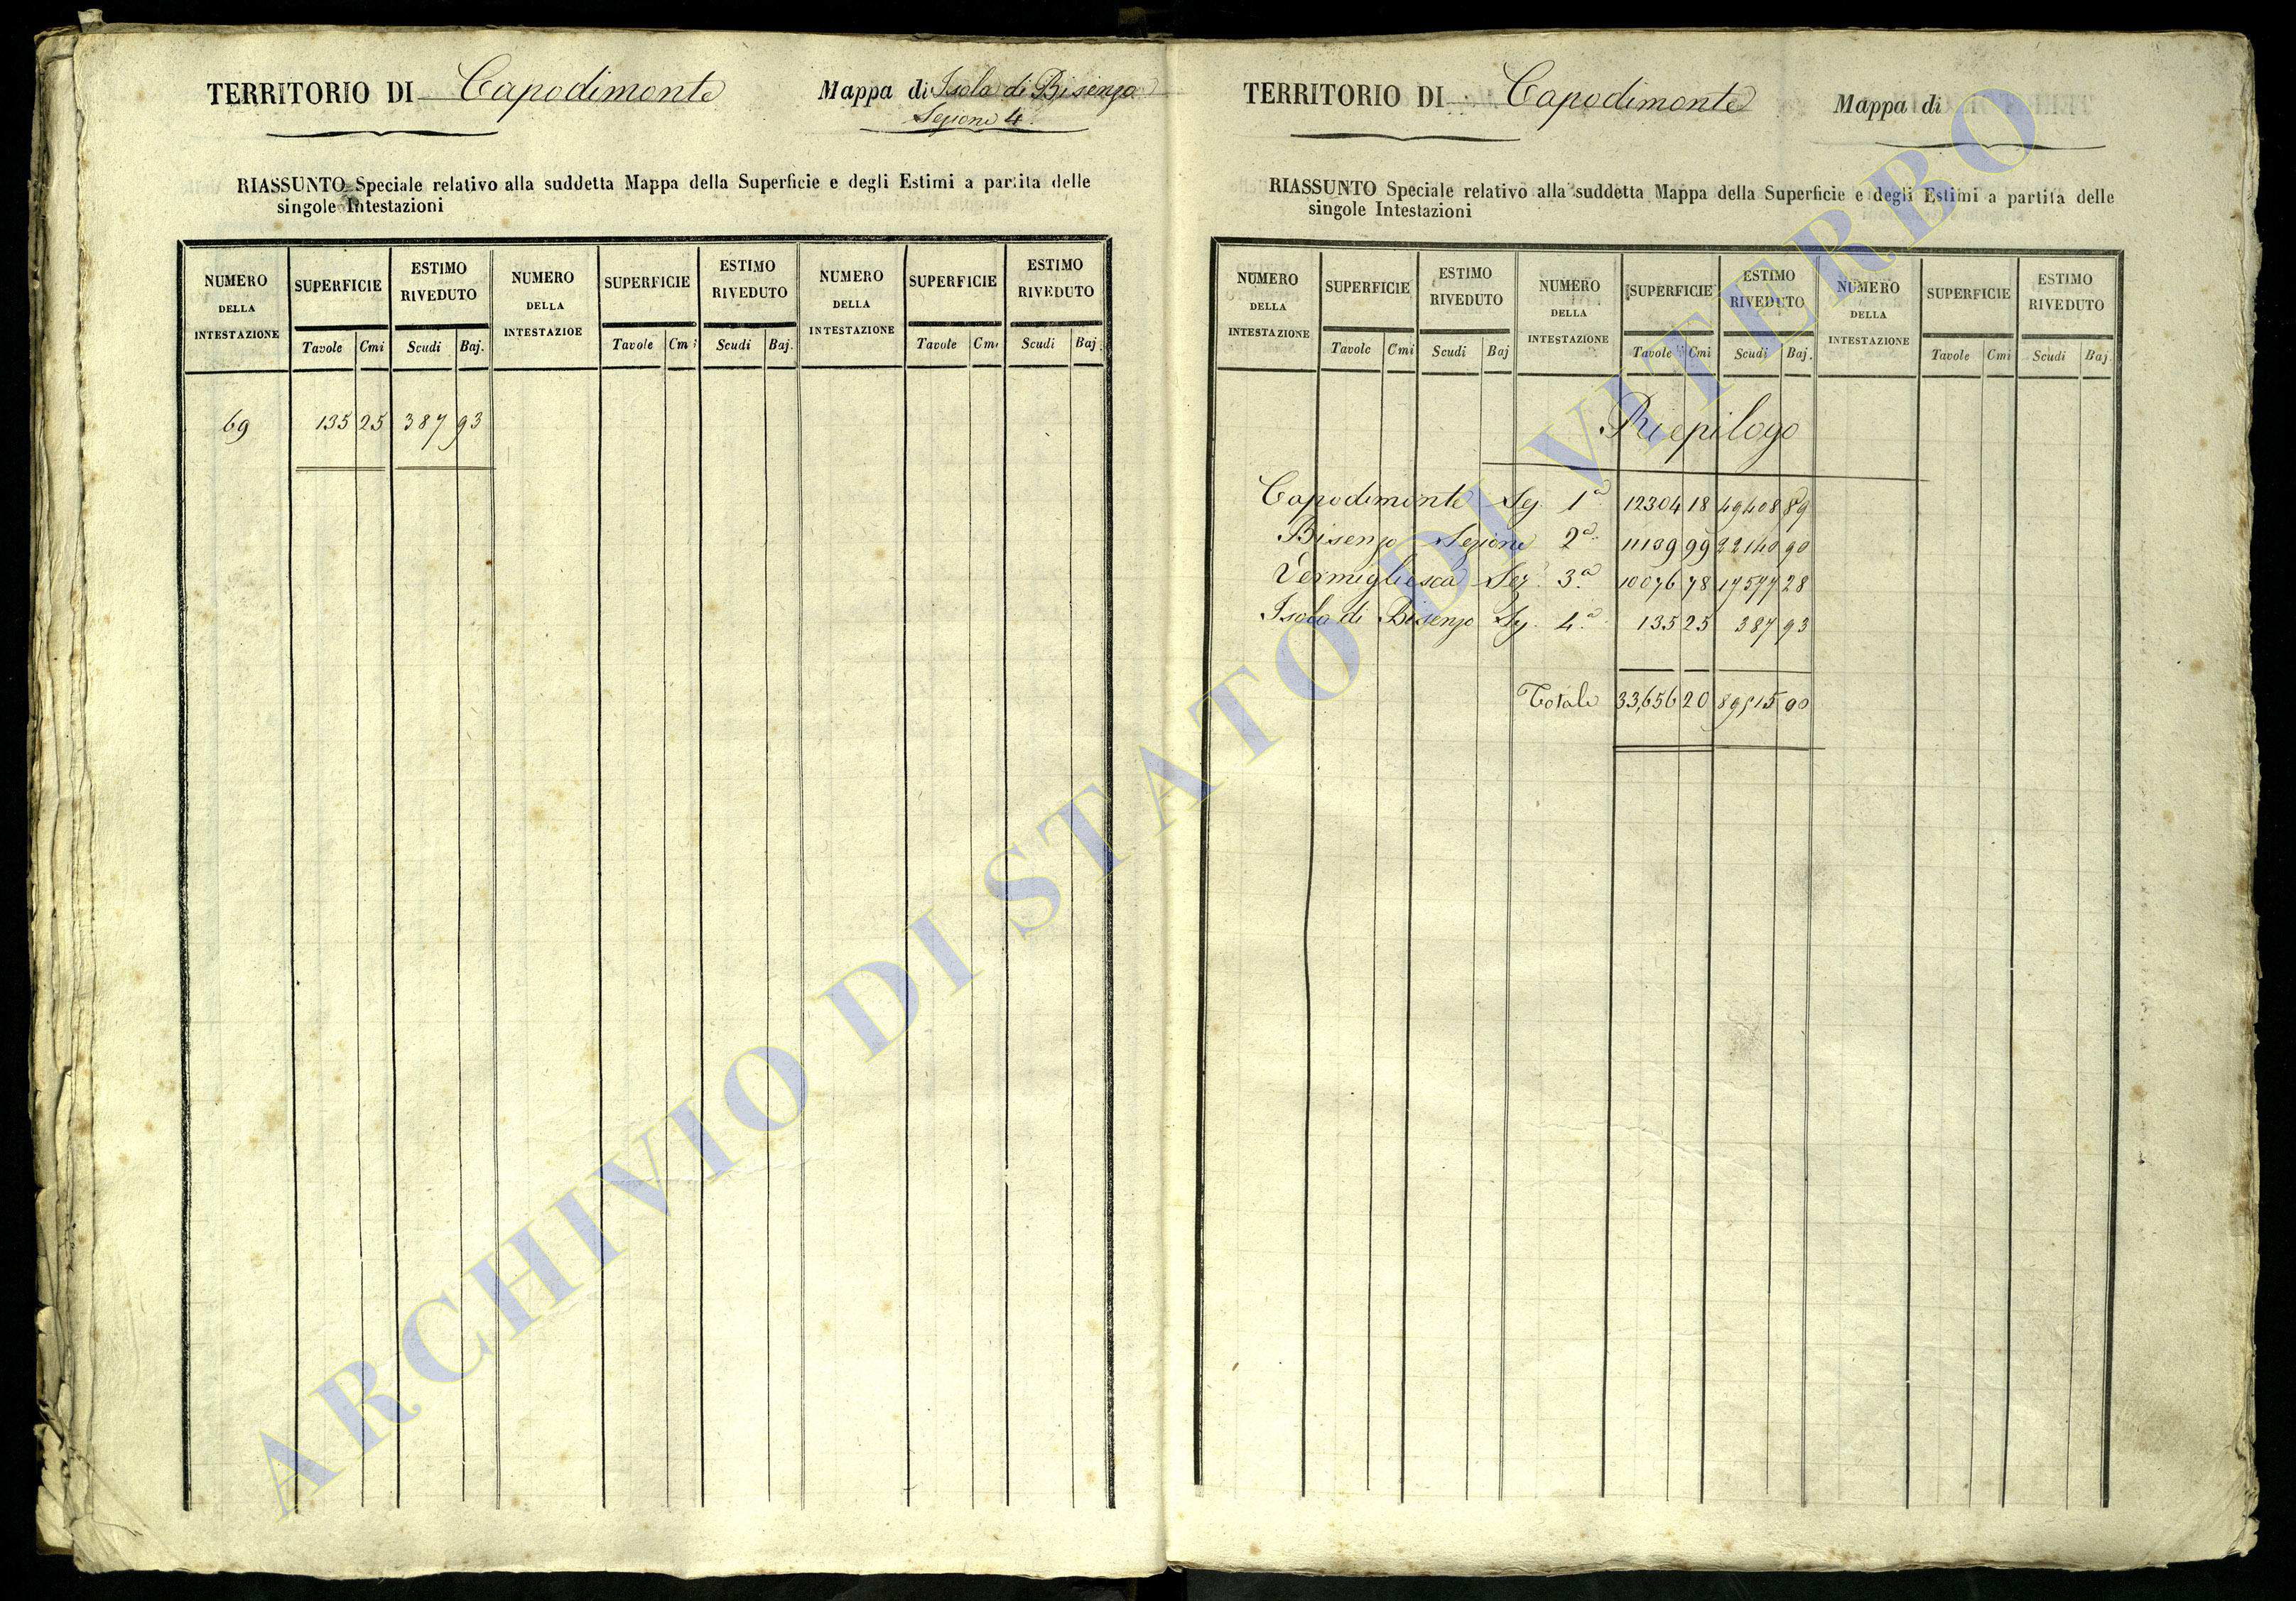 TERRITORIO DI Capodimonte Mappa di Isola di Bisenzo
Sezione 4.
RIASSUNTO Speciale relativo alla suddetta Mappa della Superficie e degli Estimi a partita delle
singole Intestazioni
NUMERO DELLA INTESTAZIONE SUPERFICIE ESTIMO RIVEDUTO NUMERO DELLA INTESTAZIOE SUPERFICIE ESTIMO RIVEDUTO NUMERO DELLA INTESTAZIONE SUPERFICIE ESTIMO RIVEDUTO
Tavole Cmi Scudi Baj. Tavole Cmi Scudi Baj. Tavole Cmi Scudi Baj.
69 135 25 387 93
TERRITORIO DI Capodimonte Mappa di
RIASSUNTO Speciale relativo alla suddetta Mappa della Superficie e degli Estimi a partita delle
singole Intestazioni
NUMERO DELLA INTESTAZIONE SUPERFICIE ESTIMO RIVEDUTO NUMERO DELLA INTESTAZIONE SUPERFICIE ESTIMO RIVEDUTO NUMERO DELLA INTESTAZIONE SUPERFICIE ESTIMO RIVEDUTO
Tavole Cmi Scudi Baj Tavole Cmi Scudi Baj. Tavole Cmi Scudi Baj.
Riepilogo
Capodimonte Sez. 1ª 12304 18 49408 89
Bisenzo Sezione 2ª 11139 99 22140 90
Vermigliesca Sez. 3ª 10076 78 17577 28
Isola di Bisenzo Sez. 4ª 135 25 387 93
Totale 33,656 20 89515 00
ARCHIVIO DI STATO DI VITERBO